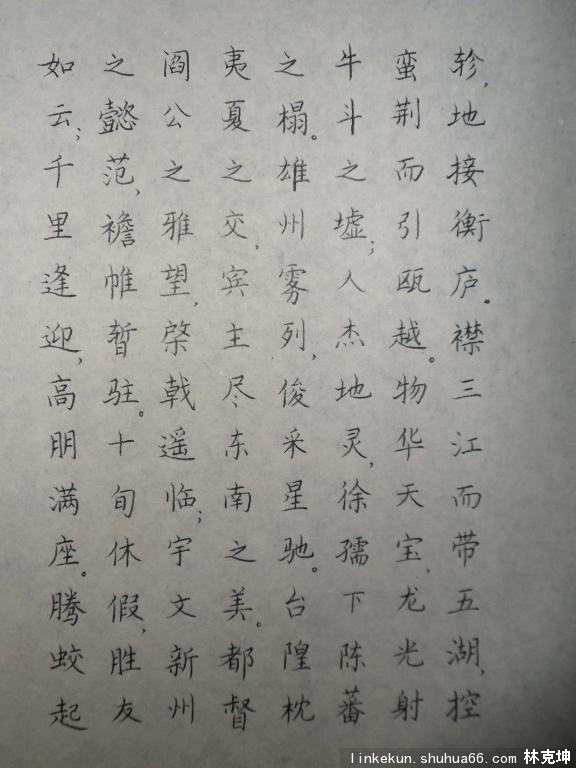 轸，地接衡庐。襟三江而带五湖，控
蛮荆而引瓯越。物华天宝，龙光射
牛斗之墟；人杰地灵，徐孺下陈蕃
之榻。雄州雾列，俊采星驰。台隍枕
夷夏之交，宾主尽东南之美。都督
阎公之雅望，棨戟遥临；宇文新州
之懿范，襜帷暂驻。十旬休假，胜友
如云；千里逢迎，高朋满座。腾蛟起
linkekun.shuhua66.com 林克坤